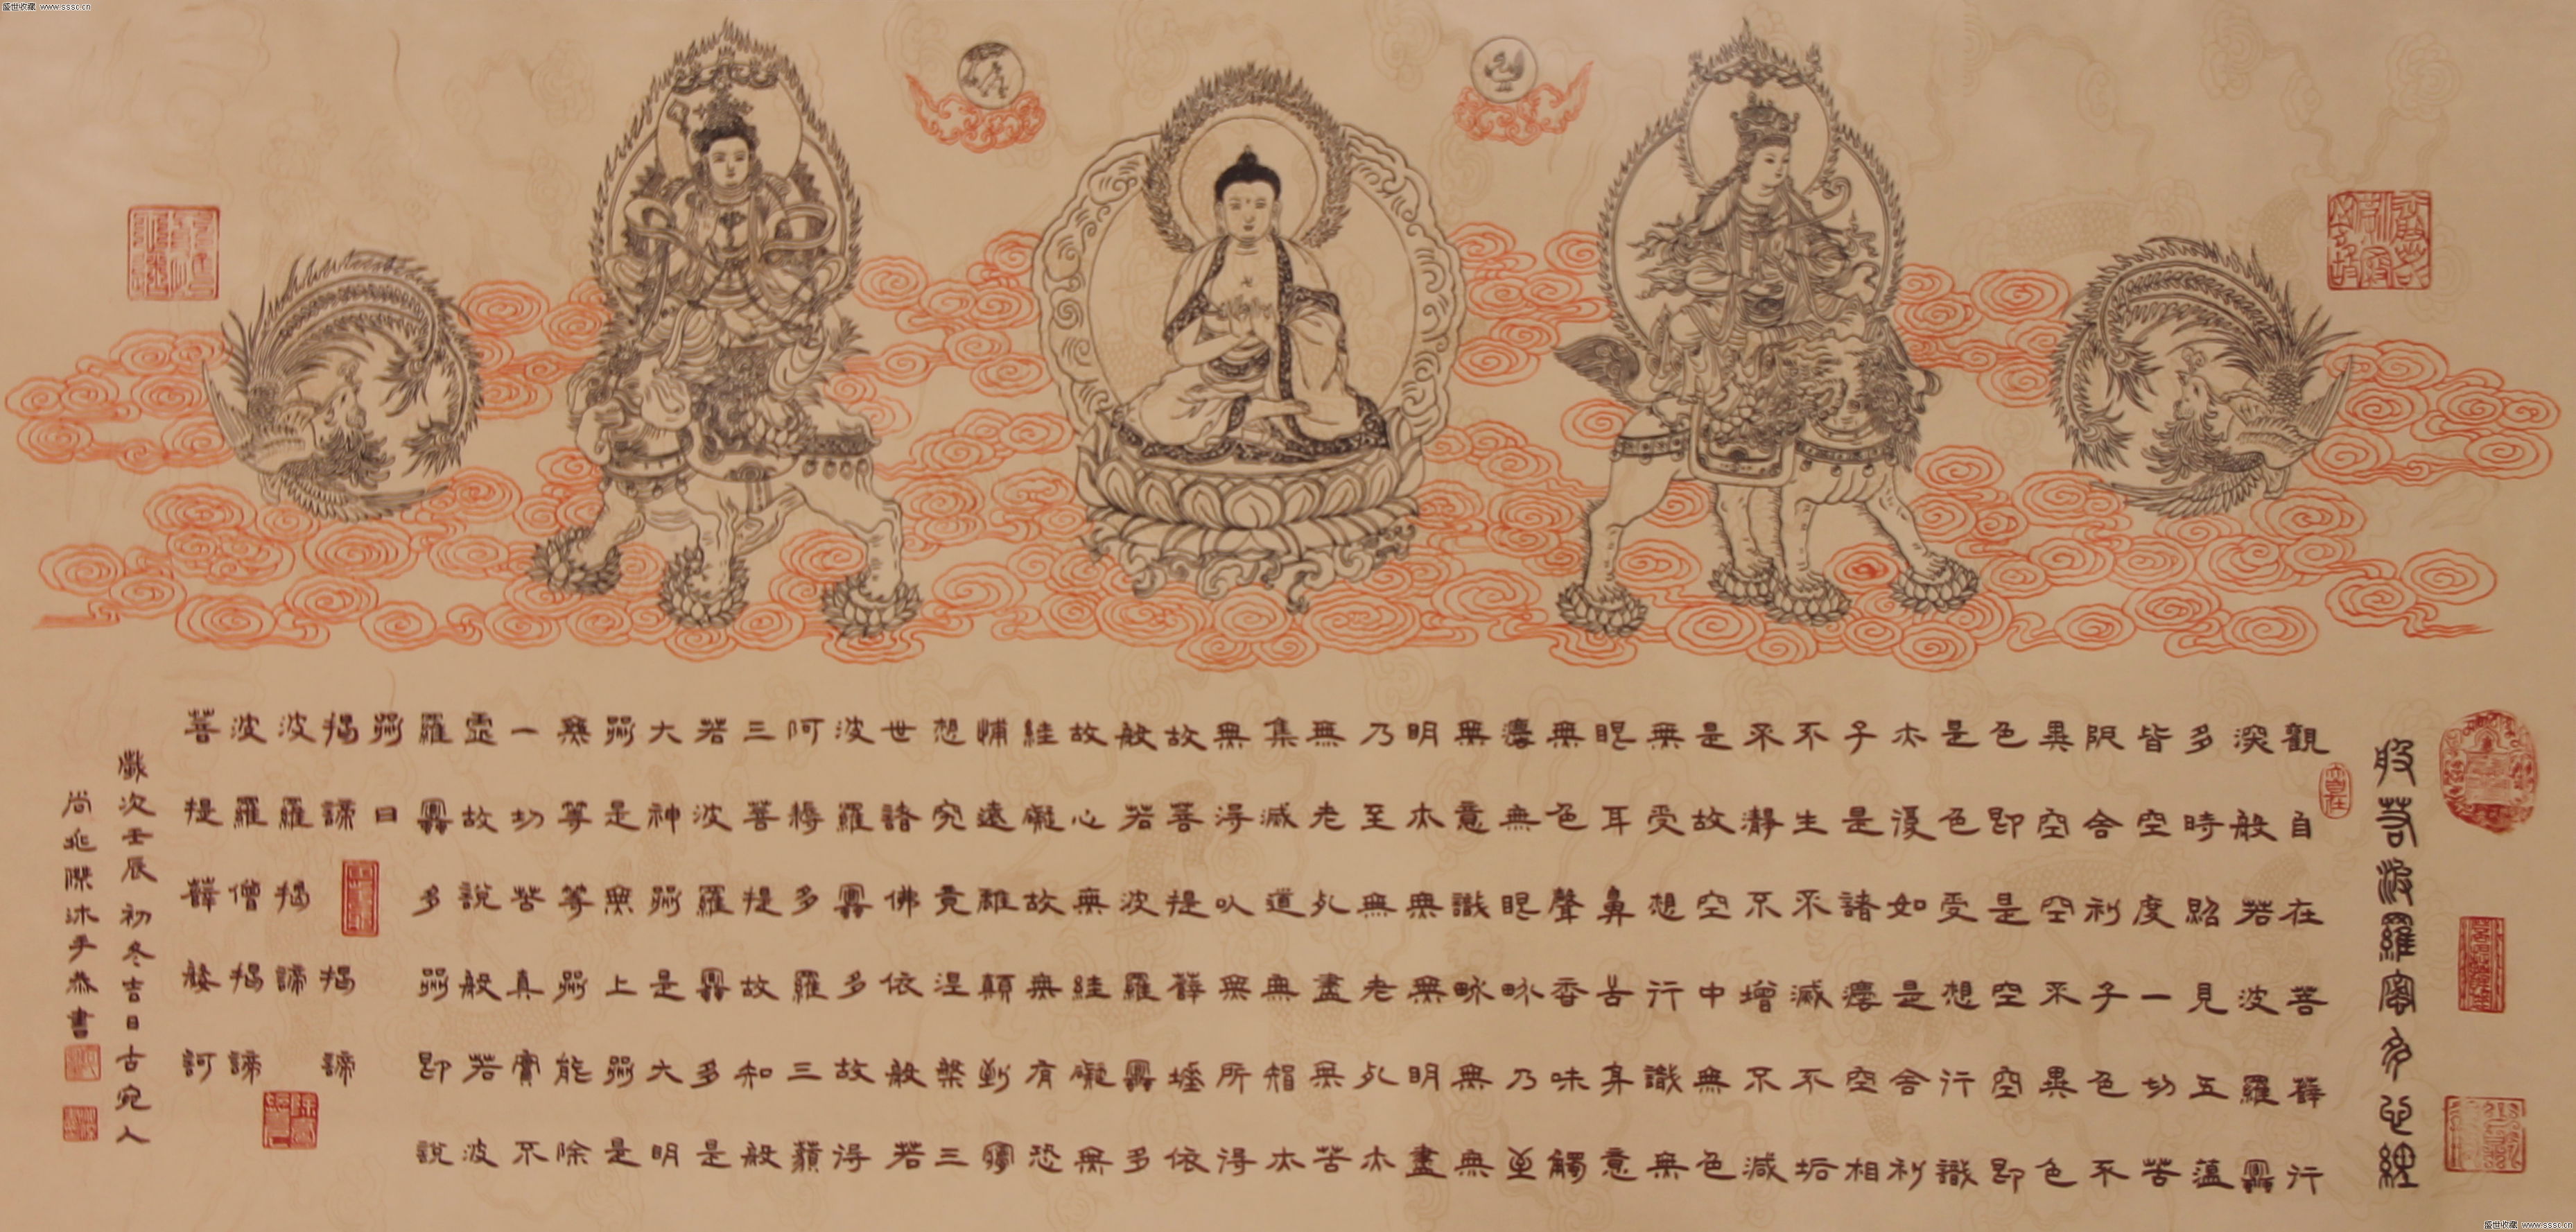 盛世收藏 www.sssc.cn
般若波羅蜜多心經
觀自在菩薩行
深般若波羅蜜
多時照見五蘊
皆空度一切苦
厄舍利子色不
異空空不異色
色即是空空即
是色受想行識
亦復如是舍利
子是諸法空相
不生不滅不垢
不淨不增不減
是故空中無色
無受想行識無
眼耳鼻舌身意
無色聲香味觸
法無眼界乃至
無意識界無無
明亦無無明盡
乃至無老死亦
無老死盡無苦
集滅道無智亦
無得以無所得
故菩提薩埵依
般若波羅蜜多
故心無罣礙無
罣礙故無有恐
怖遠離顛倒夢
想究竟涅槃三
世諸佛依般若
波羅蜜多故得
阿耨多羅三藐
三菩提故知般
若波羅蜜多是
大神咒是大明
咒是無上咒是
無等等咒能除
一切苦真實不
虛故說般若波
羅蜜多咒即說
咒曰
揭諦揭諦
波羅揭諦
波羅僧揭諦
菩提薩婆訶
歲次壬辰初冬吉日古宛人
尚兆傑沐手恭書
盛世收藏 www.sssc.cn